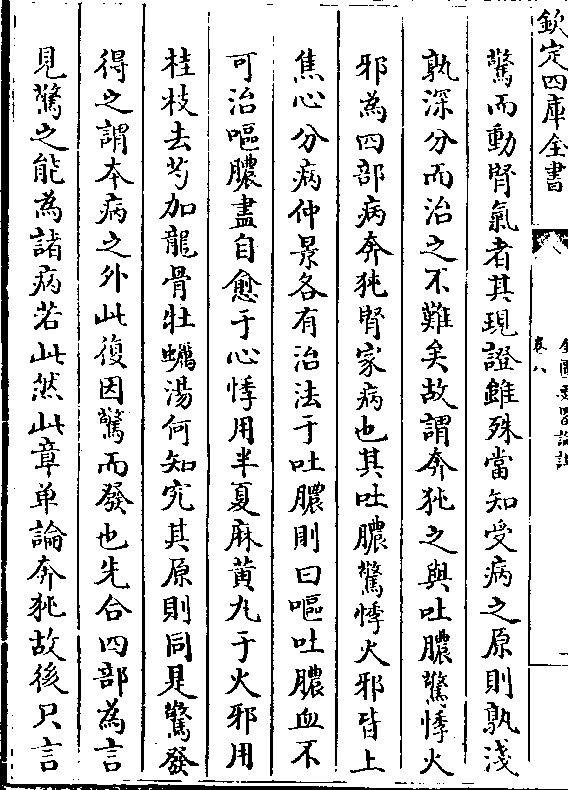 欽定四庫全書
金匱要略論註
卷八
驚而動腎氣者其現證雖殊當知受病之原則孰淺
孰深分而治之不難矣故謂奔㹠之與吐膿驚悸火
邪為四部病奔㹠腎家病也其吐膿驚悸火邪皆上
焦心分病仲景各有治法于吐膿則曰嘔吐膿血不
可治嘔膿盡自愈于心悸用半夏麻黄丸于火邪用
桂枝去芍加龍骨牡蠣湯何知究其原則同是驚發
得之謂本病之外此復因驚而發也先合四部為言
見驚之能為諸病若此然此章单論奔㹠故後只言